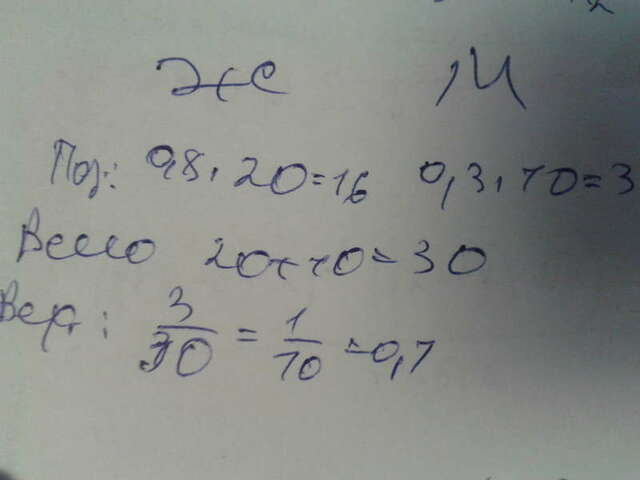 Же М
Поз: 0,8 · 20 = 16 0,3 · 10 = 3
Всего 20 + 10 = 30
Вер: 3/30 = 1/10 = 0,1